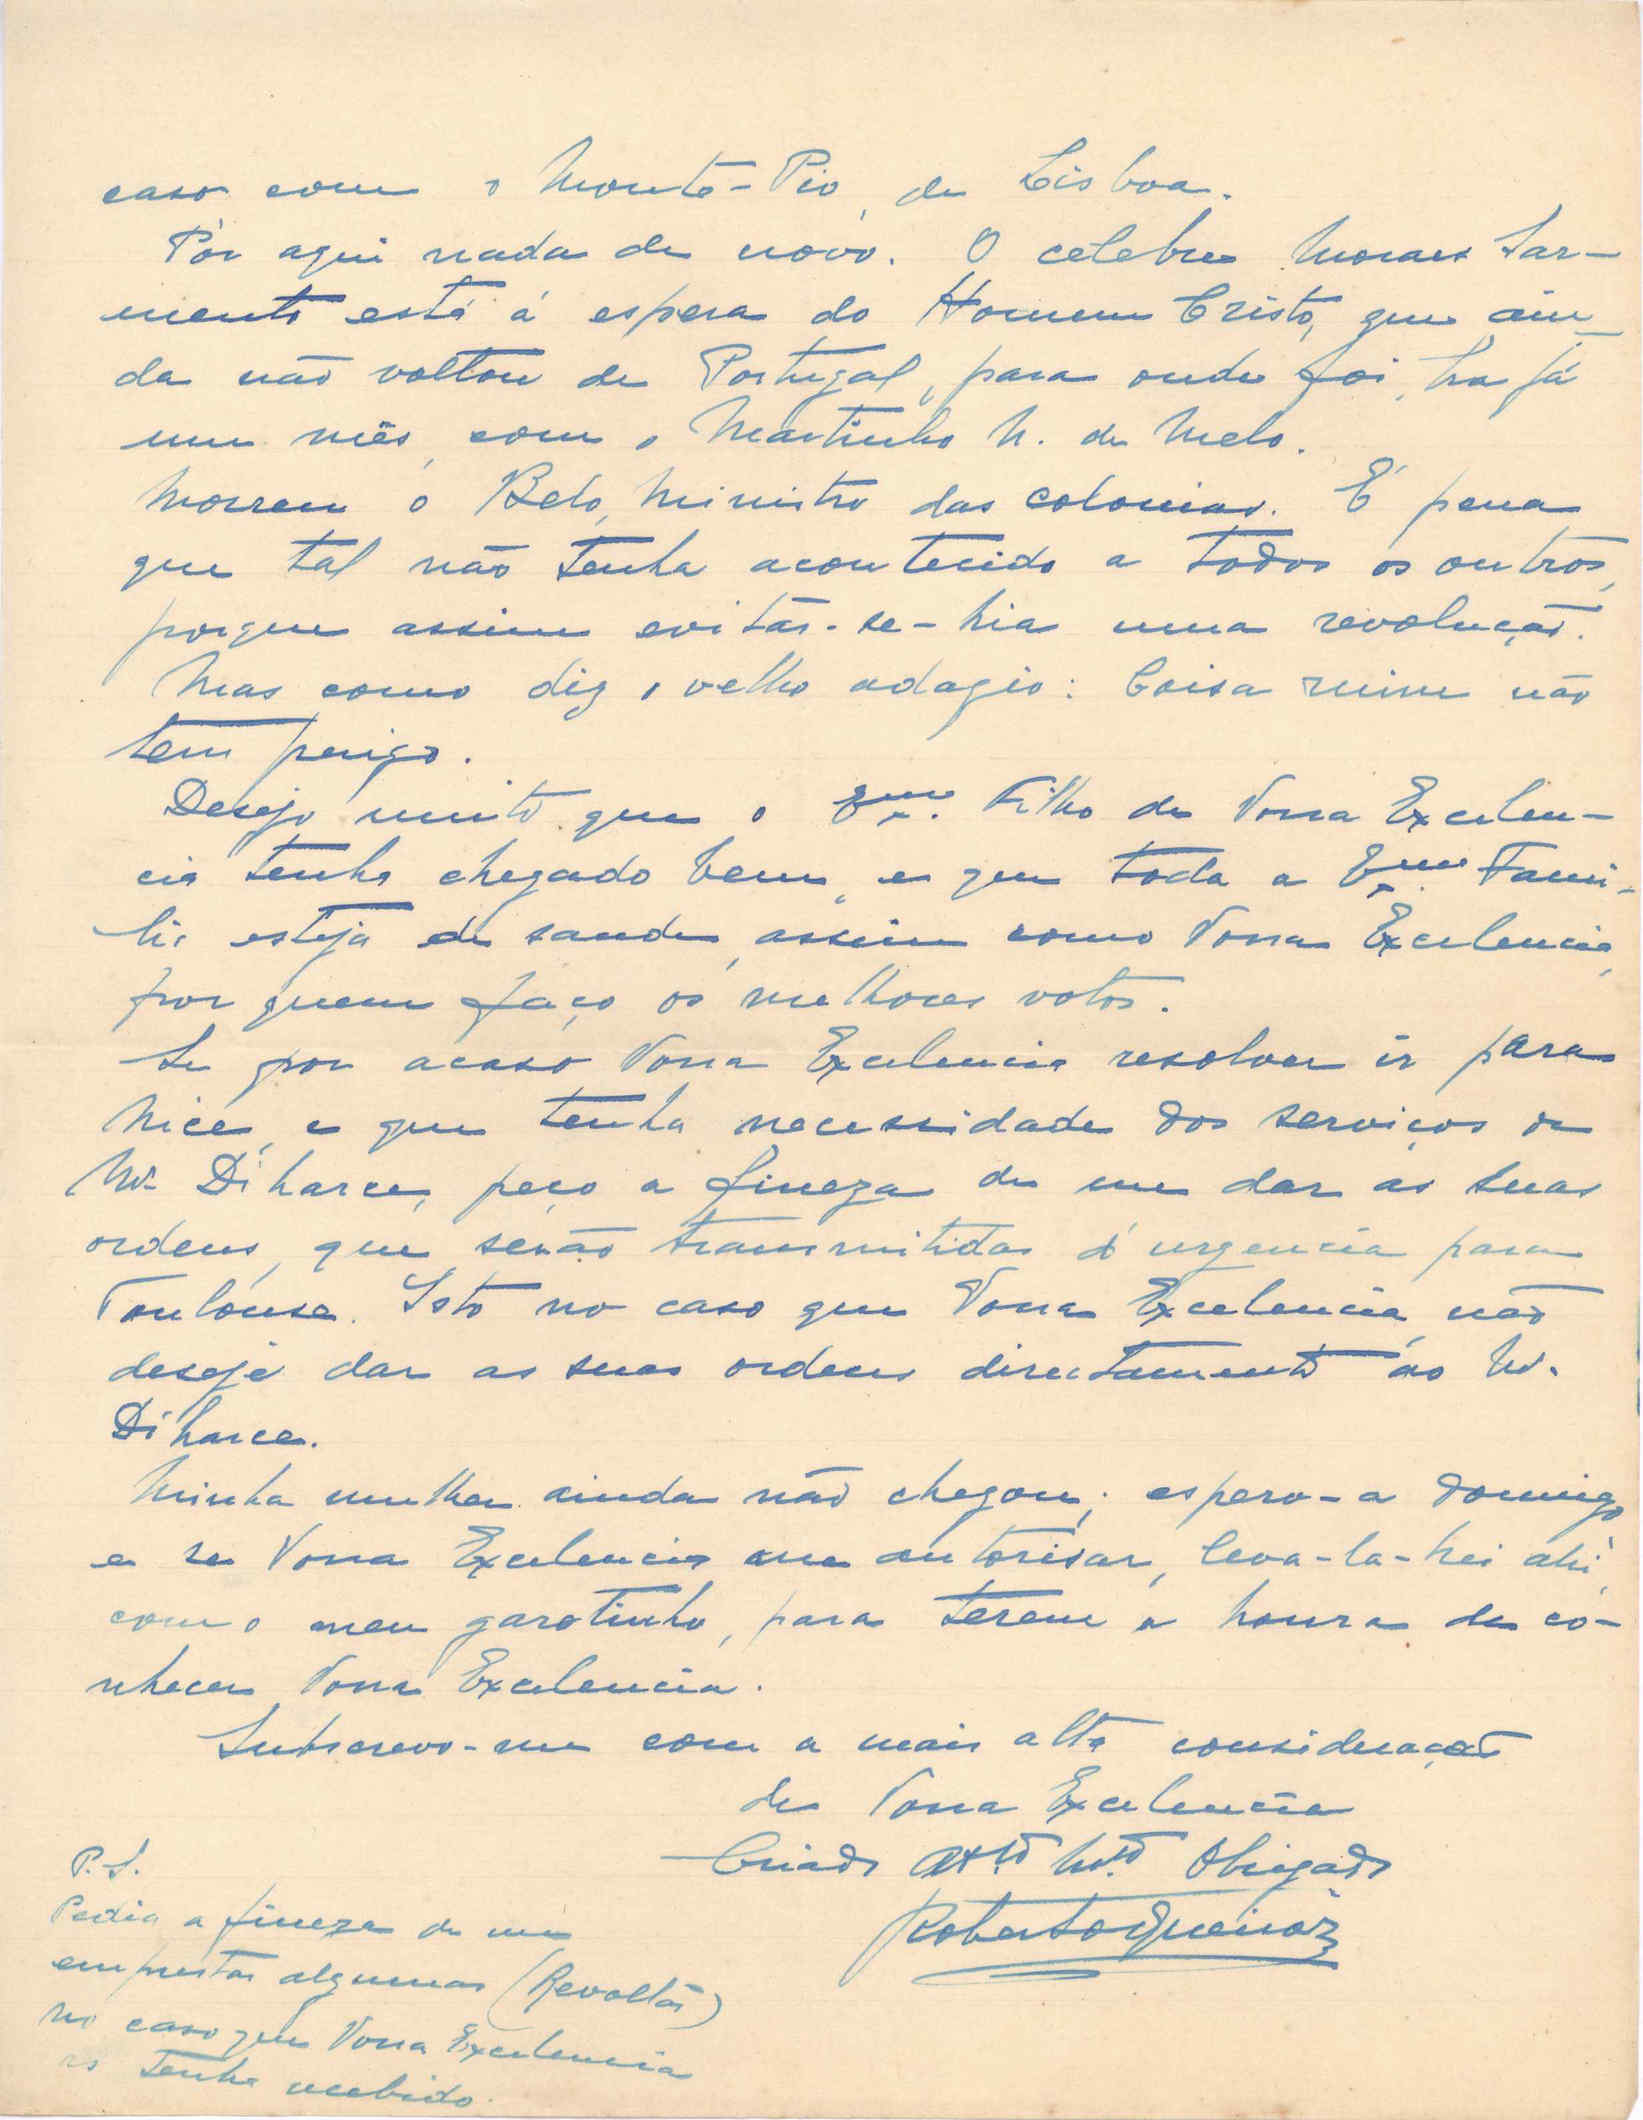 caso com o Monte-Pio, de Lisboa.
Pór aqui nada de novo. O celebre Moraes Sar-
mento está á espera do Homem Cristo, que ain-
da não voltou de Portugal, para onde foi, ha já
um mês, com o Martinho N. de Melo.
Morreu o Belo, Ministro das colonias. É pena
que tal não tenha acontecido a todos os outros,
porque assim evitar-se-hia uma revolução.
Mas como diz o velho adagio: Coisa ruim não
tem perigo.
Desejo muito que o Exmo. Filho de Vossa Excelen-
cia tenha chegado bem, e que toda a Exma. Fami-
lia esteja de saude, assim como Vossa Excelencia,
por quem faço os melhores votos.
Se por acaso Vossa Excelencia resolver ir para
Nice, e que tenha necessidade dos serviços de
Mr. Diharce, peço a fineza de me dar as suas
ordens, que serão transmitidas d'urgencia para
Toulouse. Isto no caso que Vossa Excelencia, não
deseje dar as suas ordens directamente ao Mr.
Diharce.
Minha mulher ainda não chegou; espero-a domingo
e se Vossa Excelencia me autorisar, leva-la-hei ahi,
com o meu garotinho, para terem a honra de co-
nhecer Vossa Excelencia.
Subscrevo-me com a mais alta consideração
de Vossa Excelencia
Criado Attº. Mtº. Obrigado
Roberto Queiroz
P.S.
Pedia a fineza de me
emprestar algumas (Revoltas)
no caso que Vossa Excelencia
as tenha recebido.